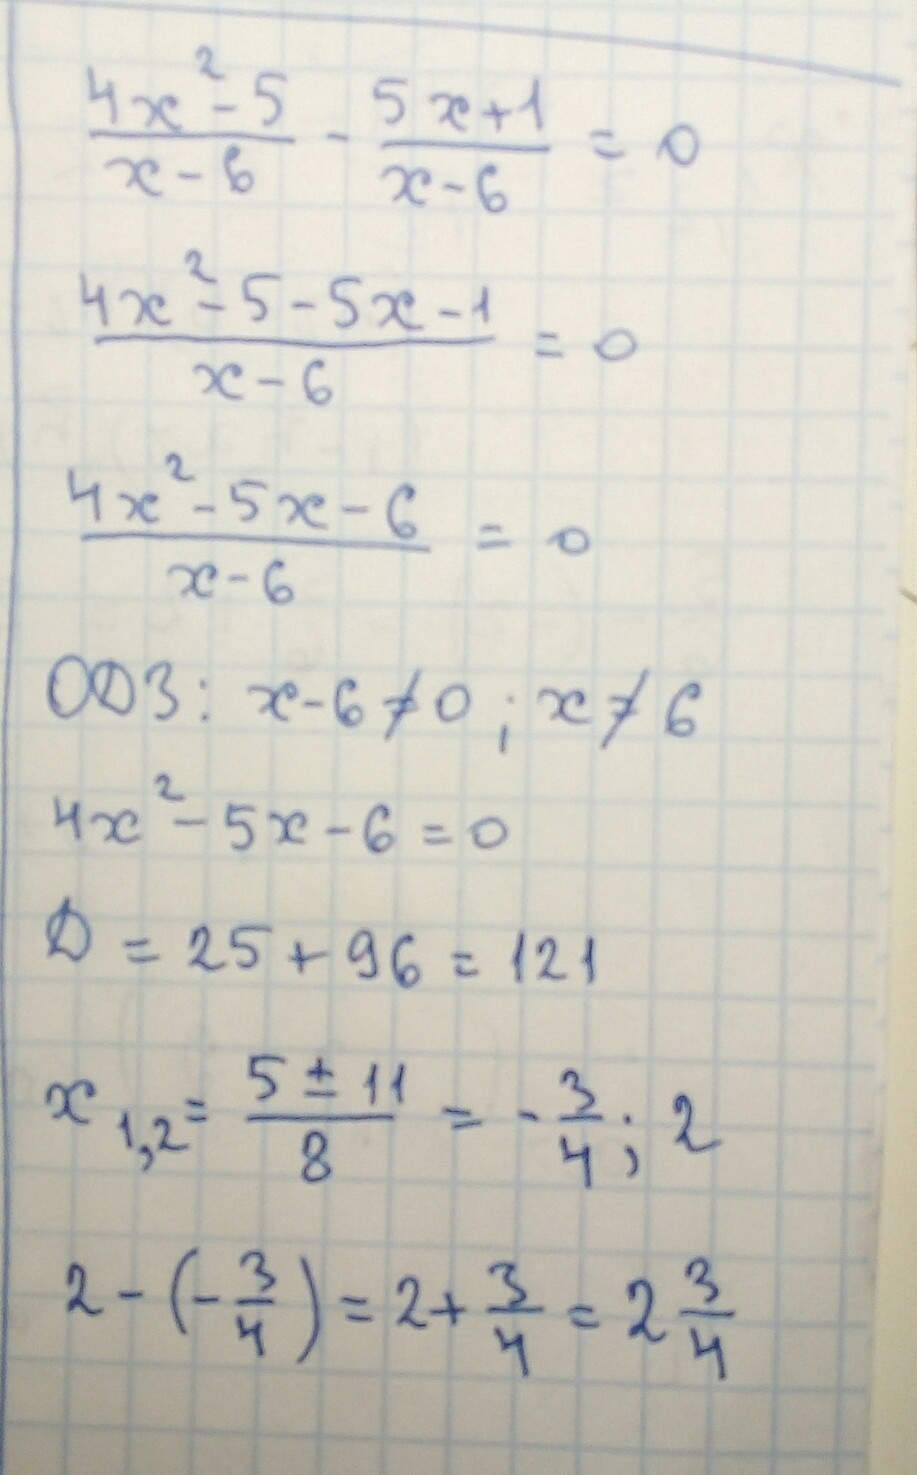 (4x² - 5)/(x - 6) - (5x + 1)/(x - 6) = 0
(4x² - 5 - 5x - 1)/(x - 6) = 0
(4x² - 5x - 6)/(x - 6) = 0
ОДЗ: x - 6 ≠ 0 ; x ≠ 6
4x² - 5x - 6 = 0
D = 25 + 96 = 121
x₁,₂ = (5 ± 11)/8 = -3/4 ; 2
2 - (-3/4) = 2 + 3/4 = 2 3/4